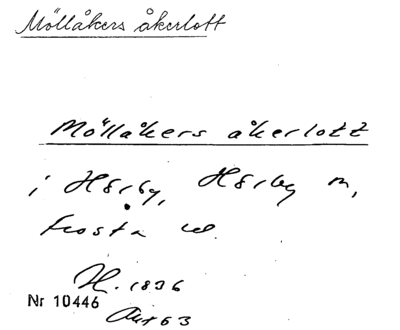 Möllåkers åkerlott
Möllåkers åkerlott
i Hörby, Hörby m,
Frosta
H. 1836
Nr 10446
Akt 63